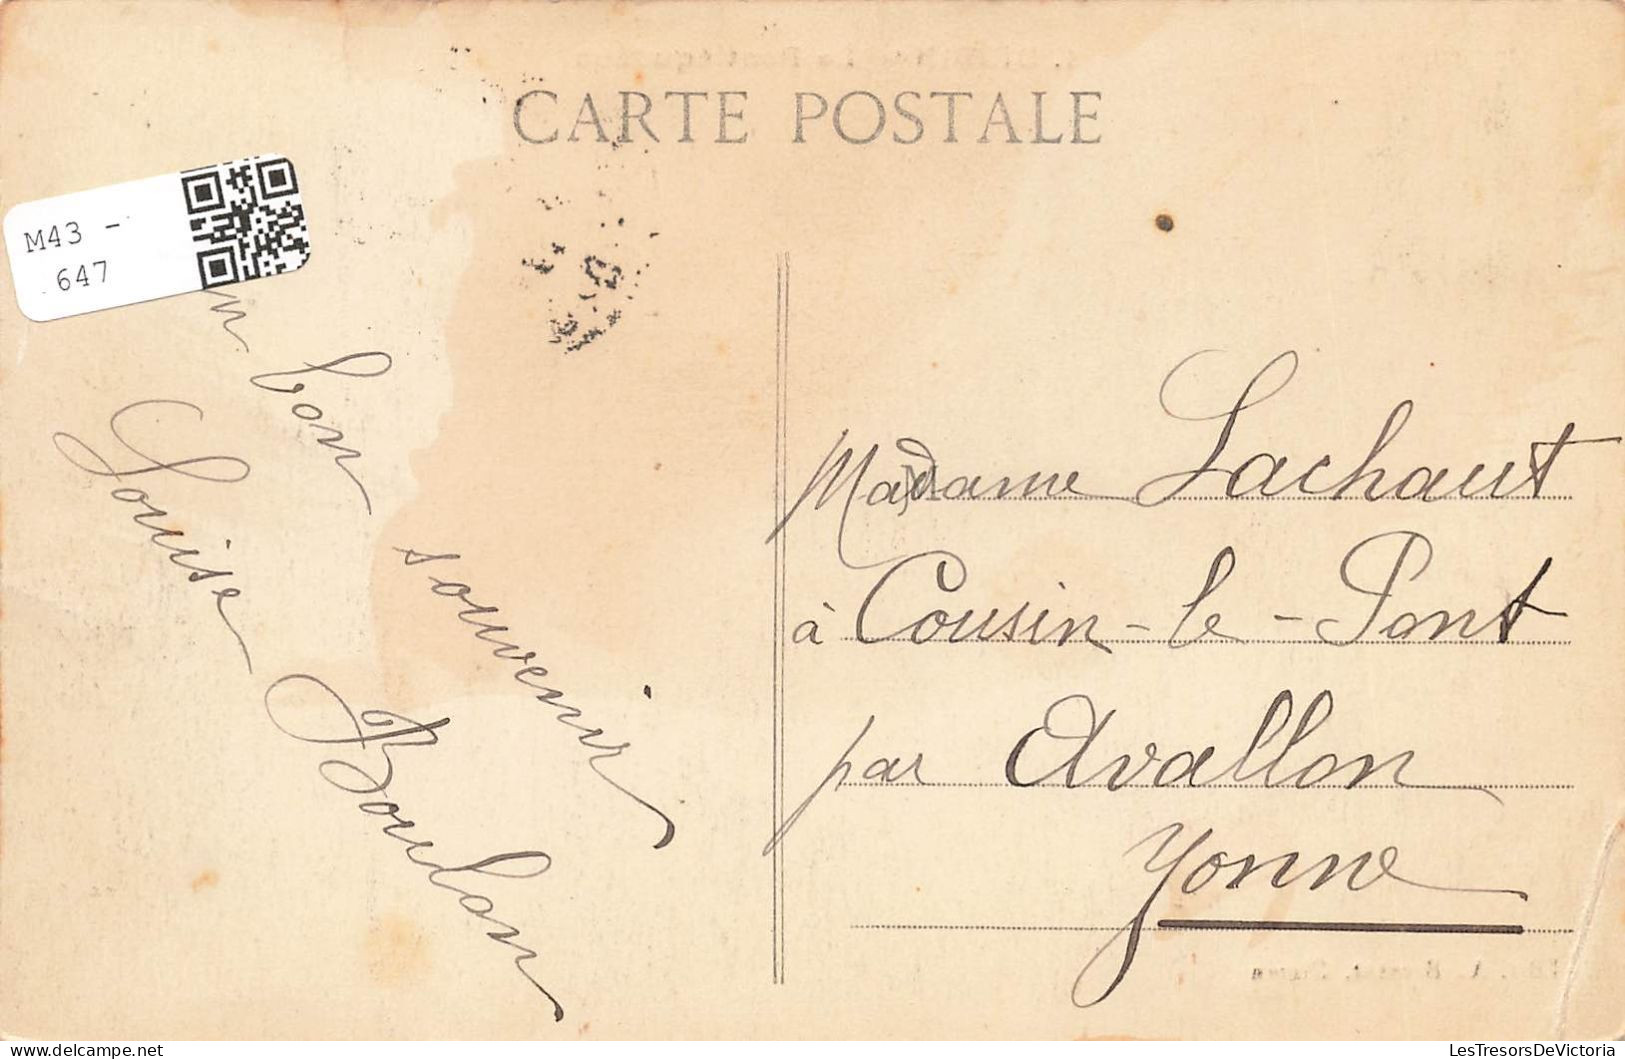 CARTE POSTALE
M43 -
647
n bon
souvenir
Louise
Boulon
Madame Lachaut
à Cousin-le-Pont
par Avallon
Yonne
LesTresorsDeVictoria
LesTresorsDeVictoria.com